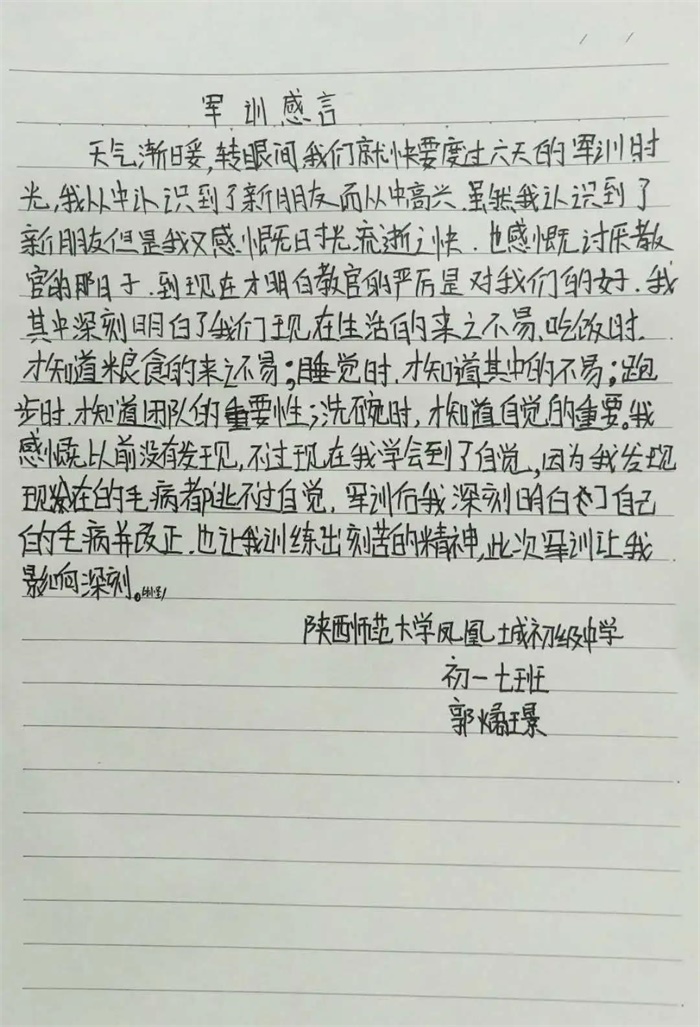 军训感言
天气渐日暖,转眼间我们就快要度过六天的军训时
光,我从中认识到了新朋友而从中高兴.虽然我认识到了
新朋友但是我又感慨时光流逝之快.也感慨讨厌教
官的那日子.到现在才明白教官的严厉是对我们的好.我
其中深刻明白了我们现在生活的来之不易、吃饭时.
才知道粮食的来之不易;睡觉时.才知道其中的不易;跑
步时.才知道团队的重要性;洗碗时,才知道自觉的重要。我
感慨以前没有发现,不过现在我学会到了自觉,因为我发现
现在的毛病都逃不过自觉,军训后我深刻明白了自己
的毛病并改正.也让我训练出刻苦的精神,此次军训让我
影响深刻。
陕西师范大学凤凰城初级中学
初一七班
郭燏璟